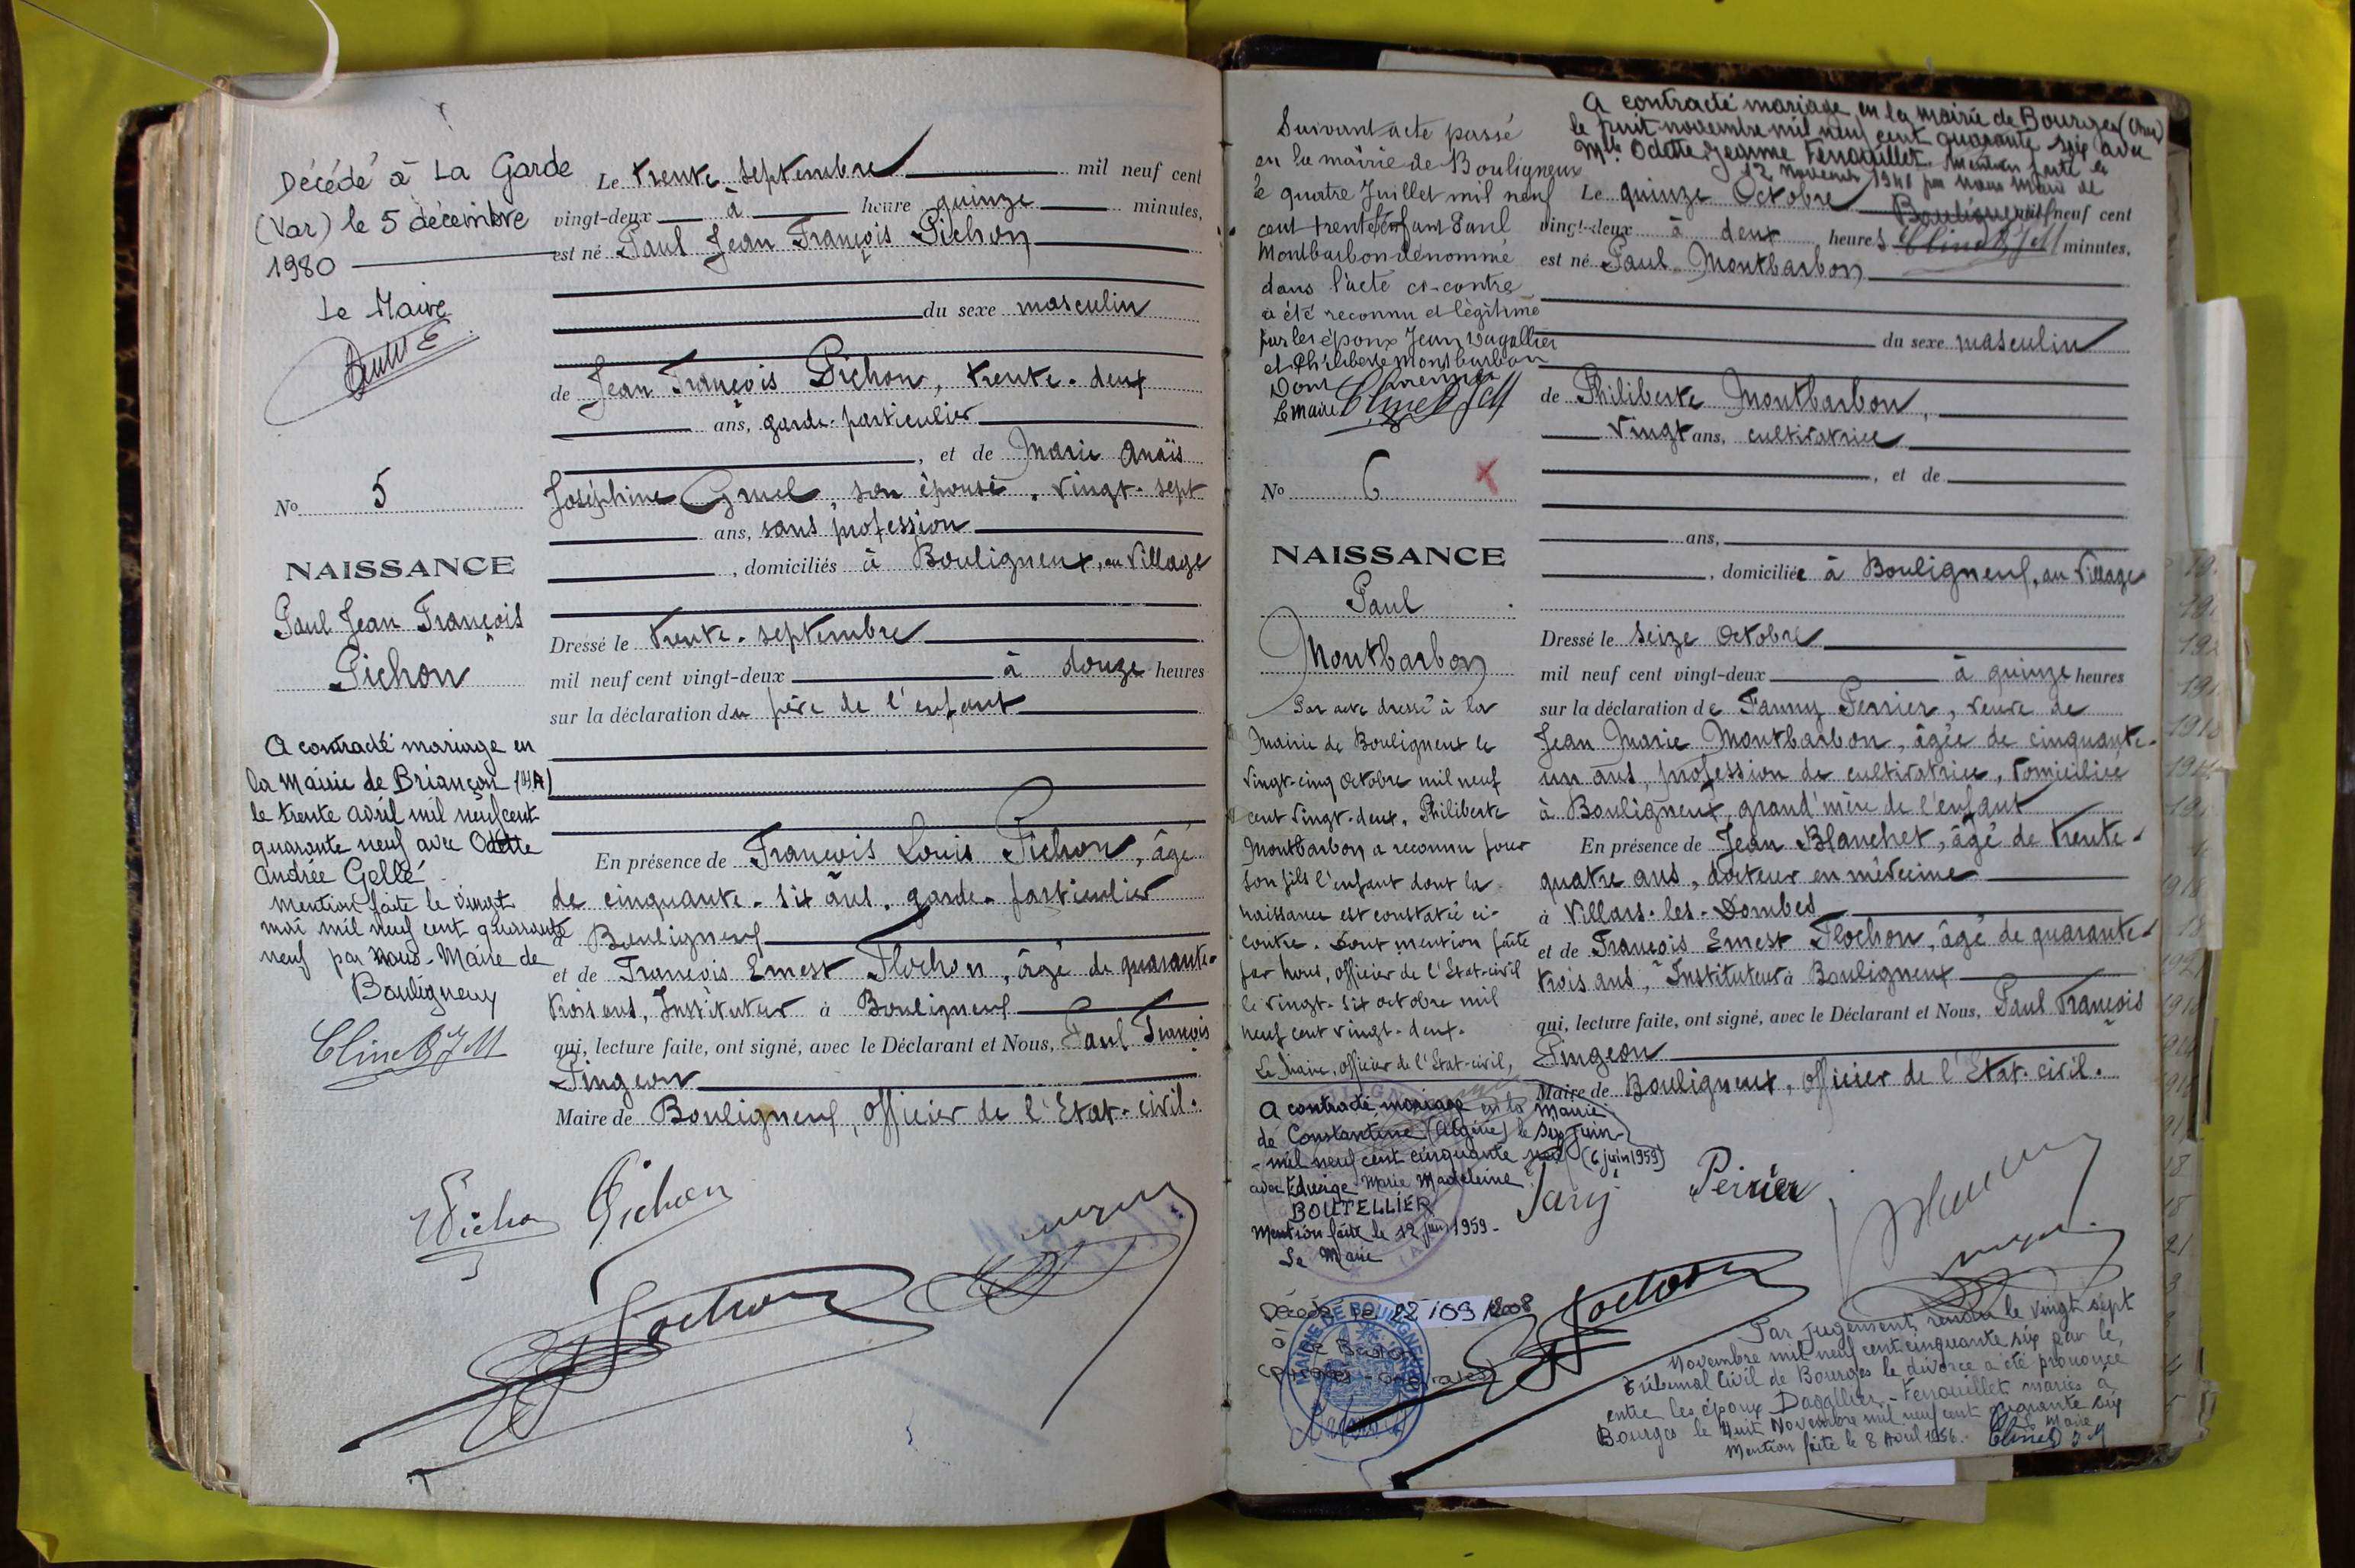 Décédé à La Garde
(Var) le 5 décembre
1980
Le Maire
No 5
NAISSANCE
Paul Jean François
Pichon
A contracté mariage en
la Mairie de Briançon (H.A)
le trente avril mil neuf cent
quarante neuf avec Odette
Andrée Gellé
mention faite le vingt
mai mil neuf cent quarante
neuf par nous Maire de
Bouligneux
Le trente septembre mil neuf cent
vingt-deux à heure quinze minutes,
est né Paul Jean François Pichon
du sexe masculin
de Jean François Pichon, trente-deux
ans, garde-particulier
, et de Marie Anaïs
Joséphine Gruel, son épouse, vingt-sept
ans, sans profession
, domiciliés à Bouligneux, au Village
Dressé le trente-septembre
mil neuf cent vingt-deux à douze heures
sur la déclaration du père de l'enfant
En présence de François Louis Pichon, âgé
de cinquante-six ans, garde-particulier
à Bouligneux
et de François Ernest Flochon, âgé de quarante-
trois ans, Instituteur à Bouligneux
qui, lecture faite, ont signé, avec le Déclarant et Nous, Paul François
Pingeon
Maire de Bouligneux, Officier de l'Etat-civil.
Pichon Pichon
Flochon
Suivant acte passé
en la mairie de Bouligneux
le quatre Juillet mil neuf
cent trente l'enfant Paul
Montbarbon dénommé
dans l'acte ci-contre
a été reconnu et légitimé
par les époux Jean Dagallier
et Philiberte Montbarbon
Dont mention
Le maire
No 6 X
NAISSANCE
Paul
Montbarbon
Par acte dressé à la
Mairie de Bouligneux le
vingt-cinq octobre mil neuf
cent vingt-deux, Philiberte
Montbarbon a reconnu pour
son fils l'enfant dont la
naissance est constatée ci-
contre. Dont mention faite
par nous, officier de l'Etat-civil
le vingt-six octobre mil
neuf cent vingt-deux.
Le Maire, officier de l'Etat-civil,
A contracté mariage en la Mairie
de Constantine (Algérie) le six juin
mil neuf cent cinquante neuf (6 juin 1959)
avec Edwige Marie Madeleine
BOUTELLIER
Mention faite le 12 juin 1959-
Le Maire
Décédé le 22/09/2008
à
MAIRIE DE BOULIGNEUX
A contracté mariage en la mairie de Bourges (Cher)
le huit novembre mil neuf cent quarante six avec
Mlle Odette Jeanne Fenouillet. Mention faite le
12 Novembre 1946 par nous Maire de
Bouligneux
Le quinze Octobre mil neuf cent
vingt-deux à deux heures minutes,
est né Paul Montbarbon
du sexe masculin
de Philiberte Montbarbon,
vingt ans, cultivatrice
, et de
ans,
, domiciliée à Bouligneux, au Village
Dressé le seize Octobre
mil neuf cent vingt-deux à quinze heures
sur la déclaration de Fanny Perrier, veuve de
Jean Marie Montbarbon, âgée de cinquante-
un ans, profession de cultivatrice, domiciliée
à Bouligneux, grand'mère de l'enfant
En présence de Jean Blanchet, âgé de trente-
quatre ans, docteur en médecine
à Villars-les-Dombes
et de François Ernest Flochon, âgé de quarante-
trois ans, Instituteur à Bouligneux
qui, lecture faite, ont signé, avec le Déclarant et Nous, Paul François
Pingeon
Maire de Bouligneux, Officier de l'Etat-civil.
Perrier
Flochon
Par jugement rendu le vingt sept
Novembre mil neuf cent cinquante six par le
Tribunal Civil de Bourges le divorce a été prononcé
entre les époux Dagallier-Fenouillet mariés à
Bourges le huit Novembre mil neuf cent quarante six
Mention faite le 8 Avril Le Maire